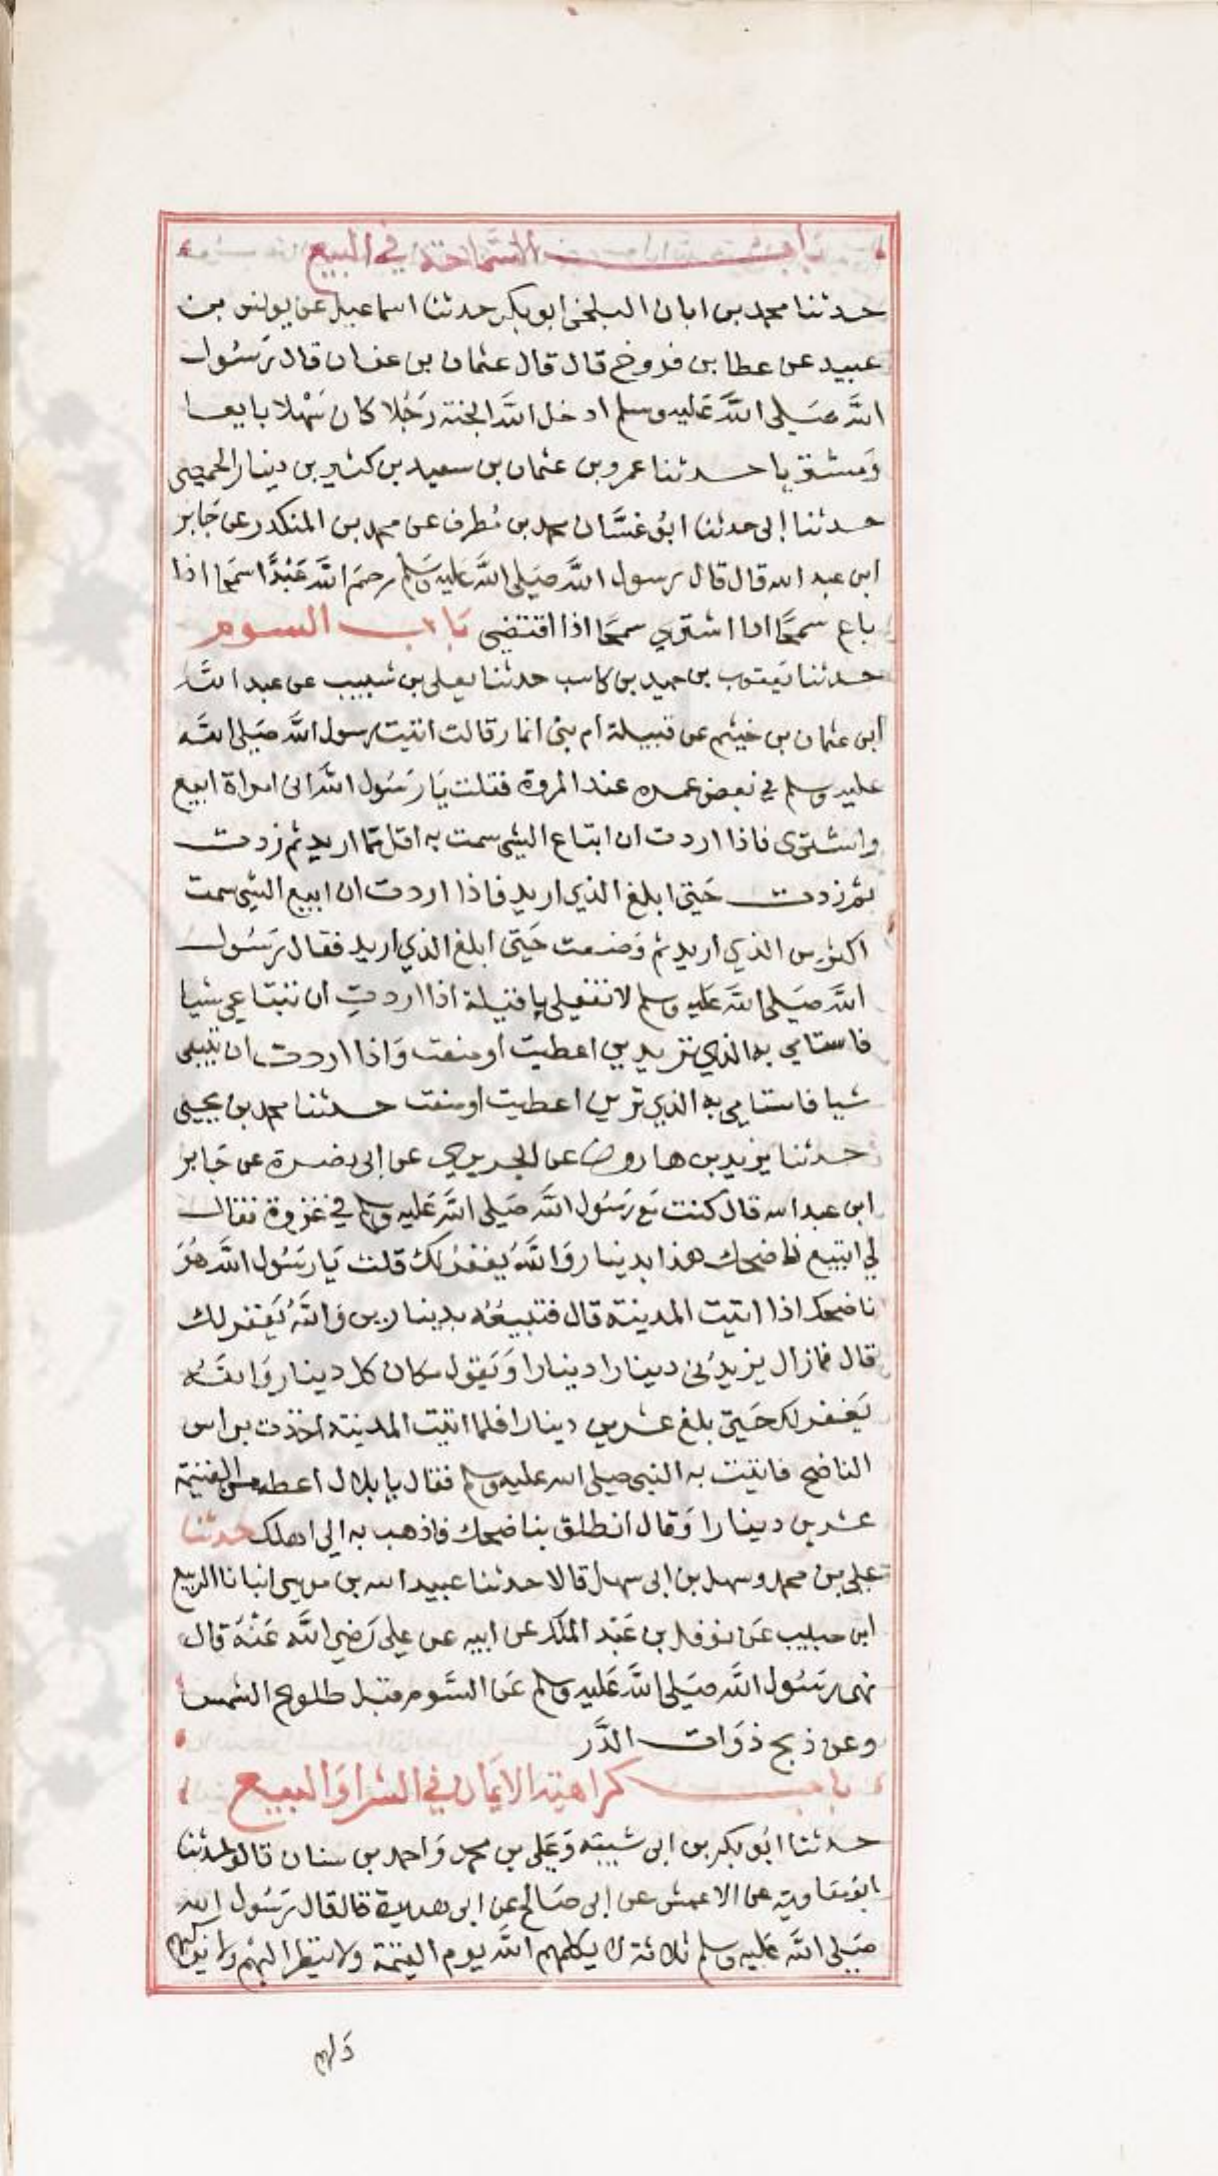 باب السماحة في البيع
حدثنا محمد بن ابان البلخي ابو بكر حدثنا اسماعيل عن يونس بن
عبيد عن عطا بن فروخ قال قال عثمان بن عفان قال رَسُول
اللَّه صَلى اللَّه عَليه وسلم ادخل اللَّه الجنة رَجُلا كان سَهْلا بايعا
وَمشتريا حدثنا عمرو بن عثمان بن سعيد بن كثير بن دينار الحمصي
حدثنا ابى حدثنا ابُو غسَّان محمد بن مُطرف عن محمد بن المنكدر عن جَابر
ابن عبد الله قال قال رسول اللَّه صَلى اللَّه عَليه وَسَلم رحمَ اللَّه عَبْدًا سمَحا اذا
باع سمحًا اذا اشترى سمحًا اذا اقتضى بَاب السوم
حدثنا يَعقوب بن حميد بن كاسب حدثنا يعلى بن شبيب عن عبد اللَّه
ابن عثمان بن خيثم عن قبيلة ام بنى انمار قالت اتيت رسول اللَّه صَلى اللَّه
عليه وسلم في بَعض عمره عند المروة فقلت يَا رَسُول اللَّه انى امراة ابيع
واشترى فاذا اردت ان ابتاع الشى سمت به اقل مما اريد ثم زدت
ثم زدت حَتى ابلغ الذي اريد فاذا اردت ان ابيع الشى سمت
اكثر من الذي اريد ثم وَضعت حَتى ابلغ الذي اريد فقال رَسُول
اللَّه صَلى اللَّه عَليه وسلم لا تفعلى يا قيلة اذا اردتِ ان تبتاعى شيا
فاستامي به الذي تريدين اعطيت او منعت وَاذا اردت ان تبيعى
شيا فاستامى به الذي تريدين اعطيت او منعت حدثنا محمد بن يحيى
حدثنا يزيد بن هارون عن الجريري عن ابى نضرة عن جَابر
ابن عبد الله قال كنت مَع رَسُول اللَّه صَلى اللَّه عَليه وسلم في غزوة فقال
لي اتبيع ناضحك هذا بدينار وَاللَّه يُغفرُ لك قلت يَا رَسُول اللَّه هُوَ
ناضحك اذا اتيت المدينة قال فتبيعُه بدينارين وَاللَّهُ يَغفر لك
قال فما زال يزيدُنى دينارا دينارا وَيَقول مكان كل دينار وَاللَّه
يَغفر لك حَتى بلغ عشرين دينارا فلما اتيت المدينة اخذت براس
الناضح فاتيت به النبى صلى الله عليه وسلم فقال يا بلال اعطه من الغنيمة
عشرين دينارا وَقال انطلق بناضحك فاذهب به الى اهلك حدثنا
على بن محمد وسهل بن ابى سهل قالا حدثنا عبيد الله بن موسى انبانا الربيع
ابن حبيب عَن نوفل بن عَبْد الملك عن ابيه عن على رَضي اللَّه عَنْهُ قال
نهى رَسُول اللَّه صَلى اللَّه عَليه وسلم عَن السَّوم قبل طلوع الشمس
وعن ذبح ذوَات الدَّر
باب كراهية الايمَان في الشرا وَالبيع
حدثنا ابُو بكر بن ابى شيبة وَعَلى بن محمد وَاحمد بن سنان قالوا حدثنا
ابُو مُعَاوية عن الاعمش عن ابى صَالح عن ابى هريرة قال قال رَسُول الله
صَلى اللَّه عَليه وسلم ثلاثة لا يكلمهم اللَّه يوم القيمة ولا ينظر اليهم ولا يزكيهم
وَلهم